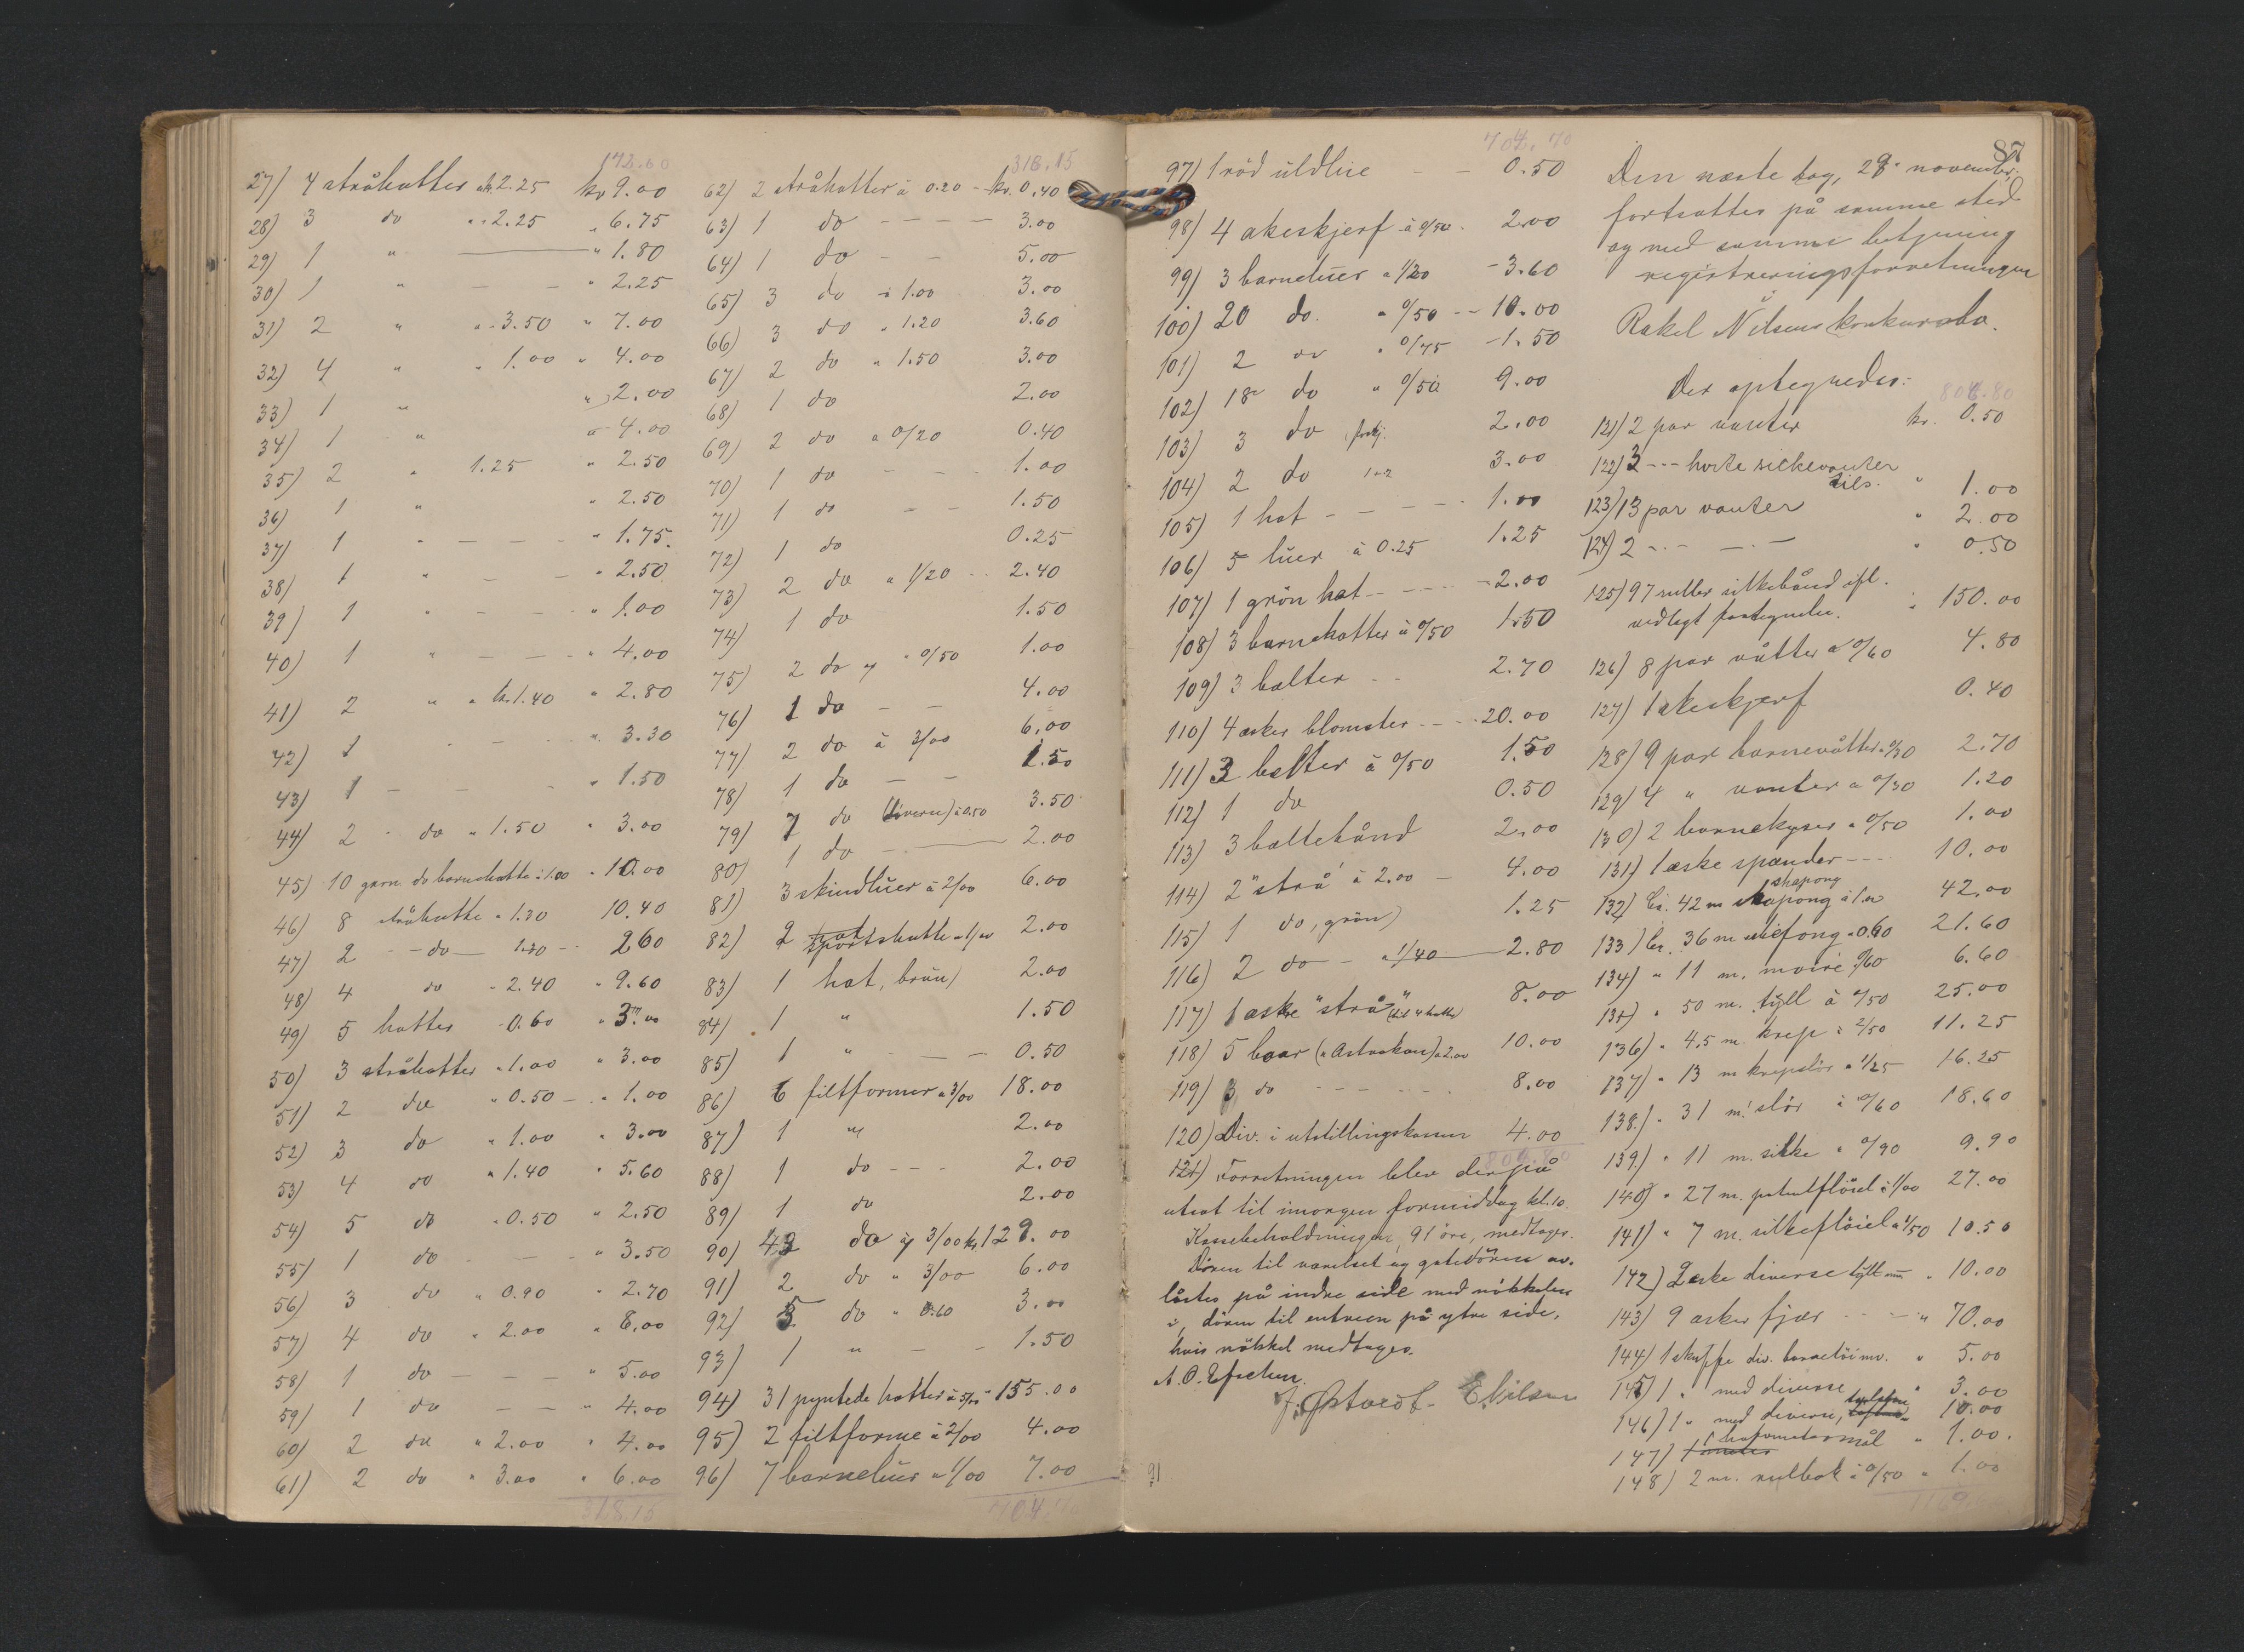 172.60
27) 4 stråhatter à kr 2.25 kr 9.00
28) 3 do " 2.25 " 6.75
29) 1 " — " 1.80
30) 1 " — — " 2.25
31) 2 " " 3.50 " 7.00
32) 4 " " 1.00 " 4.00
33) 1 " " 2.00
34) 1 " " 4.00
35) 2 " 1.25 " 2.50
36) 1 " " 2.50
37) 1 " — — — " 1.75
38) 1 " — — " 2.50
39) 1 " - - - " 1.00
40) 1 " — — - " 4.00
41) 2 " " kr. 1.40 " 2.80
42) 1 - - - " 3.30
43) 1 - - - " 1.50
44) 2 " do " 1.50 " 3.00
45) 10 garn. do barnehatte à 1.00 " 10.00
46) 8 stråhatte " 1.30 10.40
47) 2 -- do — 1.30 -- 2.60
48) 4 do " 2.40 " 9.60
49) 5 hatter 0.60 " 3.00
50) 3 stråhatter " 1.00 " 3.00
51) 2 do " 0.50 — " 1.00
52) 3 do " 1.00 " 3.00
53) 4 do " 1.40 " 5.60
54) 5 do " 0.50 " 2.50
55) 1 do - — - " 3.50
56) 3 do " 0.90 " 2.70
57) 4 do " 2.00 " 8.00
58) 1 do — — — " 5.00
59) 1 do — — " 4.00
60) 2 do " 2.00 " 4.00
61) 2 do " 3.00 " 6.00
318.15
318.15
62) 2 stråhatter à 0.20 - kr. 0.40
63) 1 do - - - - 3.00
64) 1 do - - 5.00
65) 3 do à 1.00 3.00
66) 3 do " 1.20 3.60
67) 2 do " 1.50 3.00
68) 1 do 2.00
69) 2 do " 0/20 0.40
70) 1 do - - - 1.00
71) 1 do - - 1.50
72) 1 do 0.25
73) 2 do " 1/20 -- 2.40
74) 1 do 1.50
75) 2 do " 0/50 1.00
76) 1 do - - 4.00
77) 2 do à 3/00 6.00
78) 1 do - - 1.50
79) 7 do (diverse) à 0.50 3.50
80) 1 do — 2.00
81) 3 skindluer à 2/00 6.00
82) 2 sportshatte à 1/00 2.00
83) 1 hat, brun) 2.00
84) 1 " 1.50
85) 1 " - — - 0.50
86) 6 filtformer à 3/00 18.00
87) 1 " 2.00
88) 1 do - - - 2.00
89) 1 do 2.00
90) 43 do à 3/00 kr. 129.00
91) 2 do " 3/00 6.00
92) 5 do " 0.60 3.00
93) 1 " - - 1.50
94) 31 pyntede hatter à 5/00 - 155.00
95) 2 filtforme à 2/00 4.00
96) 7 barneluer à 1/00 7.00
704.70
704.70
97) 1 röd uldlue - - 0.50
98) 4 akeskjerf à 0/50 - 2.00
99) 3 barneluer à 1/20 - 3.60
100) 20 do. " 0/50 -- 10.00
101) 2 do " 0/75 - 1.50
102) 18 do " 0/50 9.00
103) 3 do forskj. 2.00
104) 2 do 3.00
105) 1 hat - - - - 1.00
106) 5 luer à 0.25 1.25
107) 1 grön hat - - - - 2.00
108) 3 barnehatter à 0/50 1.50
109) 3 belter - - 2.70
110) 4 æsker blomster - - - 20.00
111) 3 belter à 0/50 1.50
112) 1 do 0.50
113) 3 beltebånd 2.00
114) 2 "strå" à 2.00 — 4.00
115) 1 do, grön) 1.25
116) 2 do - à 1/40 — 2.80
117) 1 æske "strå" (til 4 hatte) 8.00
118) 5 boar ("Astrakan) à 2.00 10.00
119) 3 do - - - - 8.00
120) Div. i utstillingskassen 4.00
804.80
121) Forretningen blev derpå
utsat til imorgen formiddag kl. 10.
Kassebeholdningen, 91 öre, medtages.
Dören til værelset og gatedören av-
låstes på indre side med nökkelen
i, dören til entreen på ytre side,
hvis nökkel medtages.
J. Østvedt - E. Nilsen
87
Den næste dag, 28. november,
fortsattes på samme sted
og med samme betjening
registreringsforretningen
i
Rakel Nilsens konkursbo.
Der optegnedes:
804.80
121) 2 par vanter kr. 0.50
122) 3 - - - hvite silkevanter
tils. " 1.00
123) 13 par vanter " 2.00
124) 2 - - — - — " 0.50
125) 97 ruller silkebånd ifl.
vedlagt fortegnelse. " 150.00
126) 8 par våtter à 0/60 4.80
127) 1 akeskjerf 0.40
128) 9 par barnevåtter à 0/30 2.70
129) 4 " vanter à 0/30 1.20
130) 2 barnekyser à 0/50 1.00
131) 1 æske spænder - - - 10.00
shapong
132) Ca. 42 m shapong à 1.00 42.00
133) Ca. 36 m sjifong à 0.60 21.60
134) " 11 m. moiré 0/60 6.60
135) " 50 m. tyll à 0/50 25.00
136) " 4,5 m. krep à 2/50 11.25
137) " 13 m krepslör à 1/25 16.25
138) " 31 m. slör à 0/60 18.60
139) " 11 m. silke à 0/90 9.90
140) " 27 m. patentflöiel à 1/00 27.00
141) " 7 m. silkeflöiel à 1/50 10.50
142) 2 æske diverse tyll mm " 10.00
143) 9 æsker fjær - - - " 70.00
144) 1 skuffe div. barnetöi mv. " 5.00
145) 1 " med diverse " 3.00
146) 1 " med diverse, 10.00
147) 1 mål " 1.00.
148) 2 m. à 0/50 " 1.00